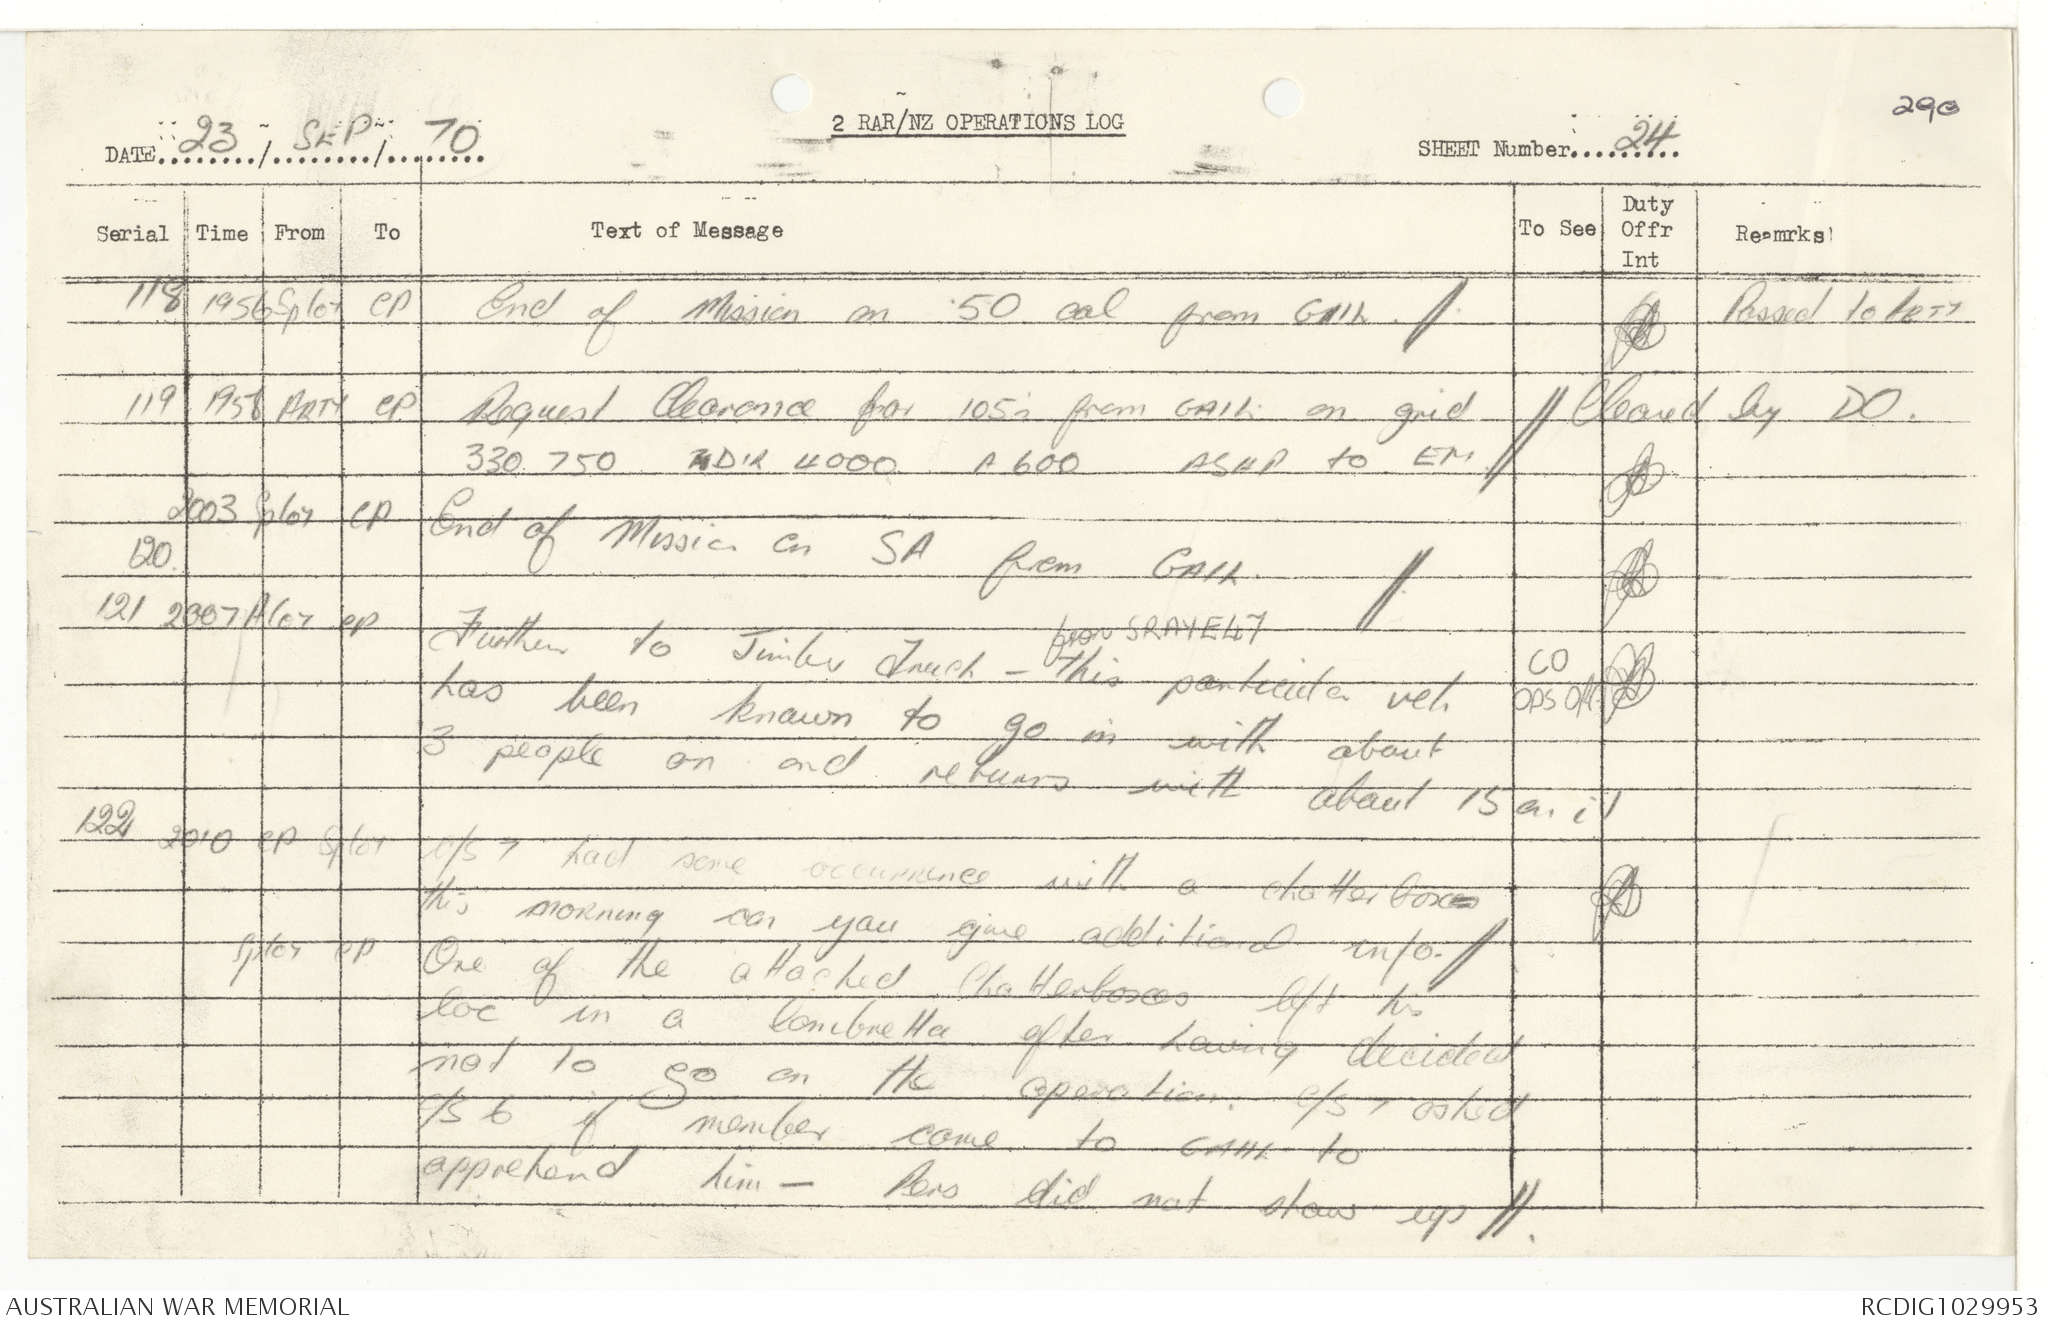 290
2 RAR/NZ OPERATIONS LOG
DATE 23 / SEP / 70
SHEET Number 24
Serial Time From To Text of Message To See Duty Offr Int Reamrks
118 1956 Sptoy CP End of Mission on .50 cal from GAIL. // Passed to Arty
119 1958 ARTY CP Request Clearance for 105's from GAIL on grid // Cleared by DO.
330 750 DIR 4000 A 600 ASAP to EM //
2003 Sptoy CP End of Mission on SA from GAIL. //
120.
121 2007 Aloy CP Further to Timber Truck - this particular veh
from SRAYE47
CO
OPS Offr
has been known to go in with about
3 people on and returns with about 15 on it
122 2010 CP Sptoy c/s 7 had some occurrence with a chatterboxes
this morning can you give additional info. //
Sptoy CP One of the attached Chatterboxes left his
loc in a lambretta after having decided
not to go on the operation. c/s 7 asked
c/s 6 if member came to GAIL to
apprehend him - Pers did not show up //.
AUSTRALIAN WAR MEMORIAL
RCDIG1029953